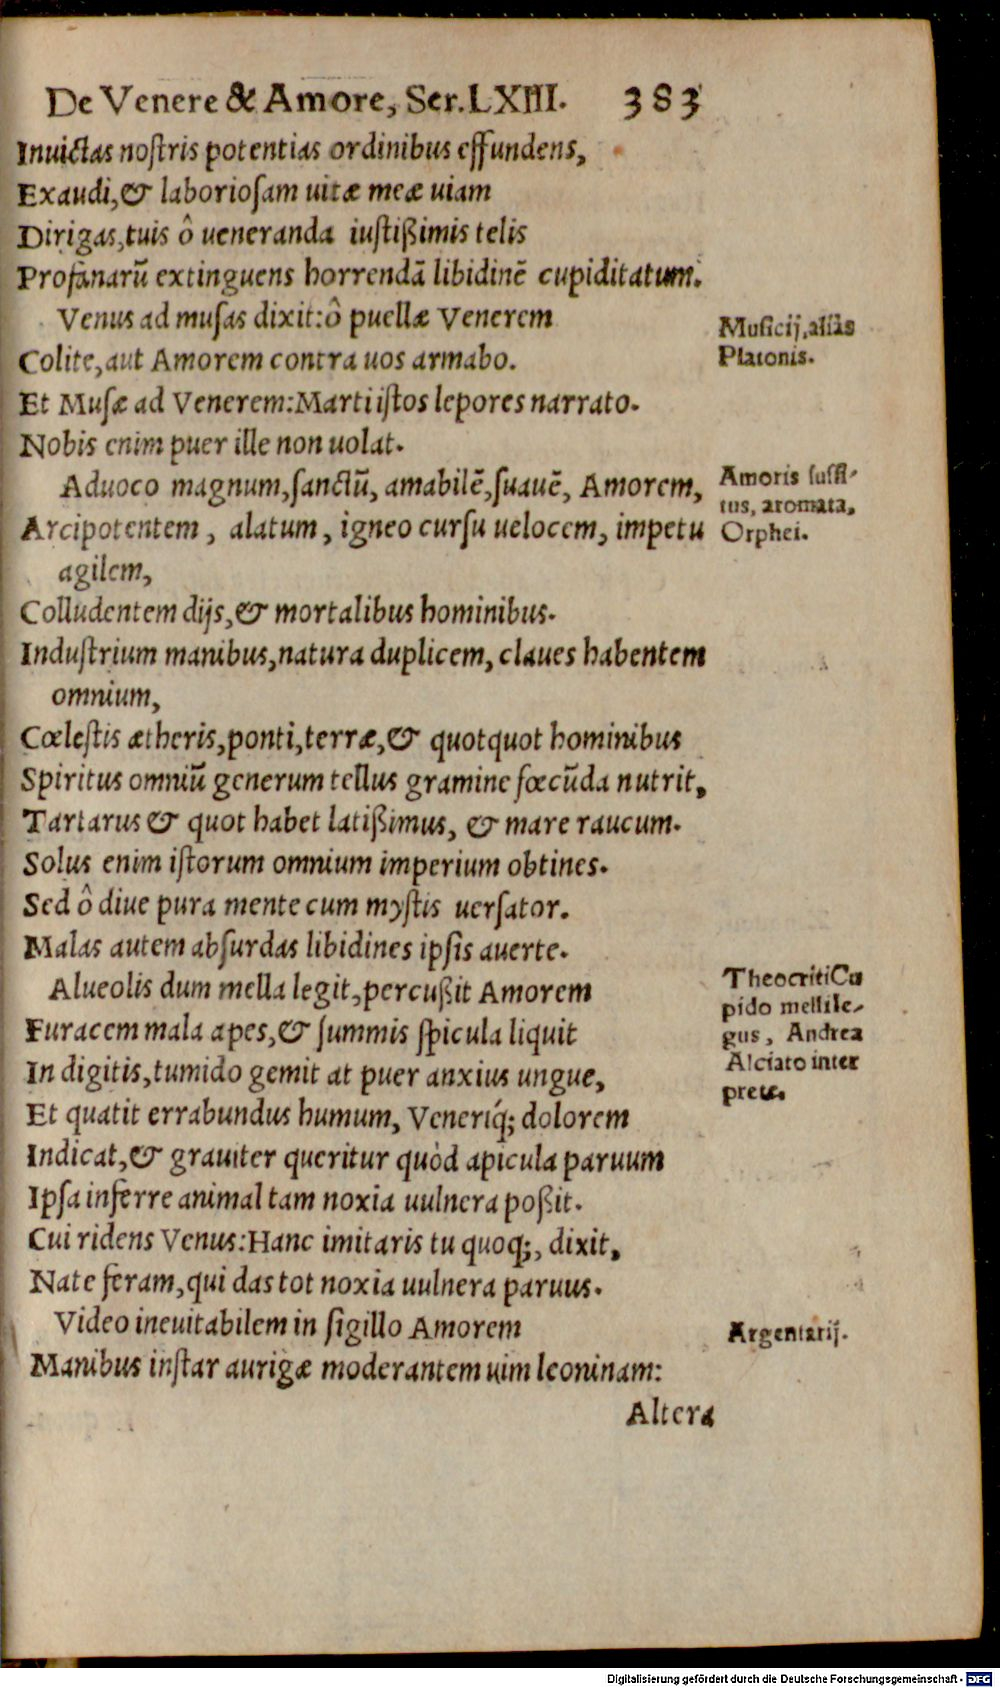 De Venere & Amore, Ser. LXIII. 383
Inuictas noſtris potentias ordinibus effundens,
Exaudi, & laborioſam uitæ meæ uiam
Dirigas, tuis ô ueneranda iuſtißimis telis
Profanarũ extinguens horrendã libidinẽ cupiditatum.
Venus ad muſas dixit: ô puellæ Venerem
Colite, aut Amorem contra uos armabo.
Et Muſæ ad Venerem: Marti iſtos lepores narrato.
Nobis enim puer ille non uolat.
Aduoco magnum, ſanctũ, amabilẽ, ſuauẽ, Amorem,
Arcipotentem, alatum, igneo curſu uelocem, impetu
agilem,
Colludentem dijs, & mortalibus hominibus.
Induſtrium manibus, natura duplicem, claues habentem
omnium,
Cœleſtis ætheris, ponti, terræ, & quotquot hominibus
Spiritus omniũ generum tellus gramine fœcũda nutrit,
Tartarus & quot habet latißimus, & mare raucum.
Solus enim iſtorum omnium imperium obtines.
Sed ô diue pura mente cum myſtis uerſator.
Malas autem abſurdas libidines ipſis auerte.
Alueolis dum mella legit, percußit Amorem
Furacem mala apes, & ſummis ſpicula liquit
In digitis, tumido gemit at puer anxius ungue,
Et quatit errabundus humum, Veneriq́; dolorem
Indicat, & grauiter queritur quòd apicula paruum
Ipſa inferre animal tam noxia uulnera poßit.
Cui ridens Venus: Hanc imitaris tu quoq;, dixit,
Nate feram, qui das tot noxia uulnera paruus.
Video ineuitabilem in ſigillo Amorem
Manibus inſtar aurigæ moderantem uim leoninam:
Altera
Muſicij, aliàs
Platonis.
Amoris ſuffi-
tus, aromata,
Orphei.
Theocriti Cu
pido mellile-
gus, Andrea
Alciato inter
prete.
Argentarij.
Digitalisierung gefördert durch die Deutsche Forschungsgemeinschaft - DFG